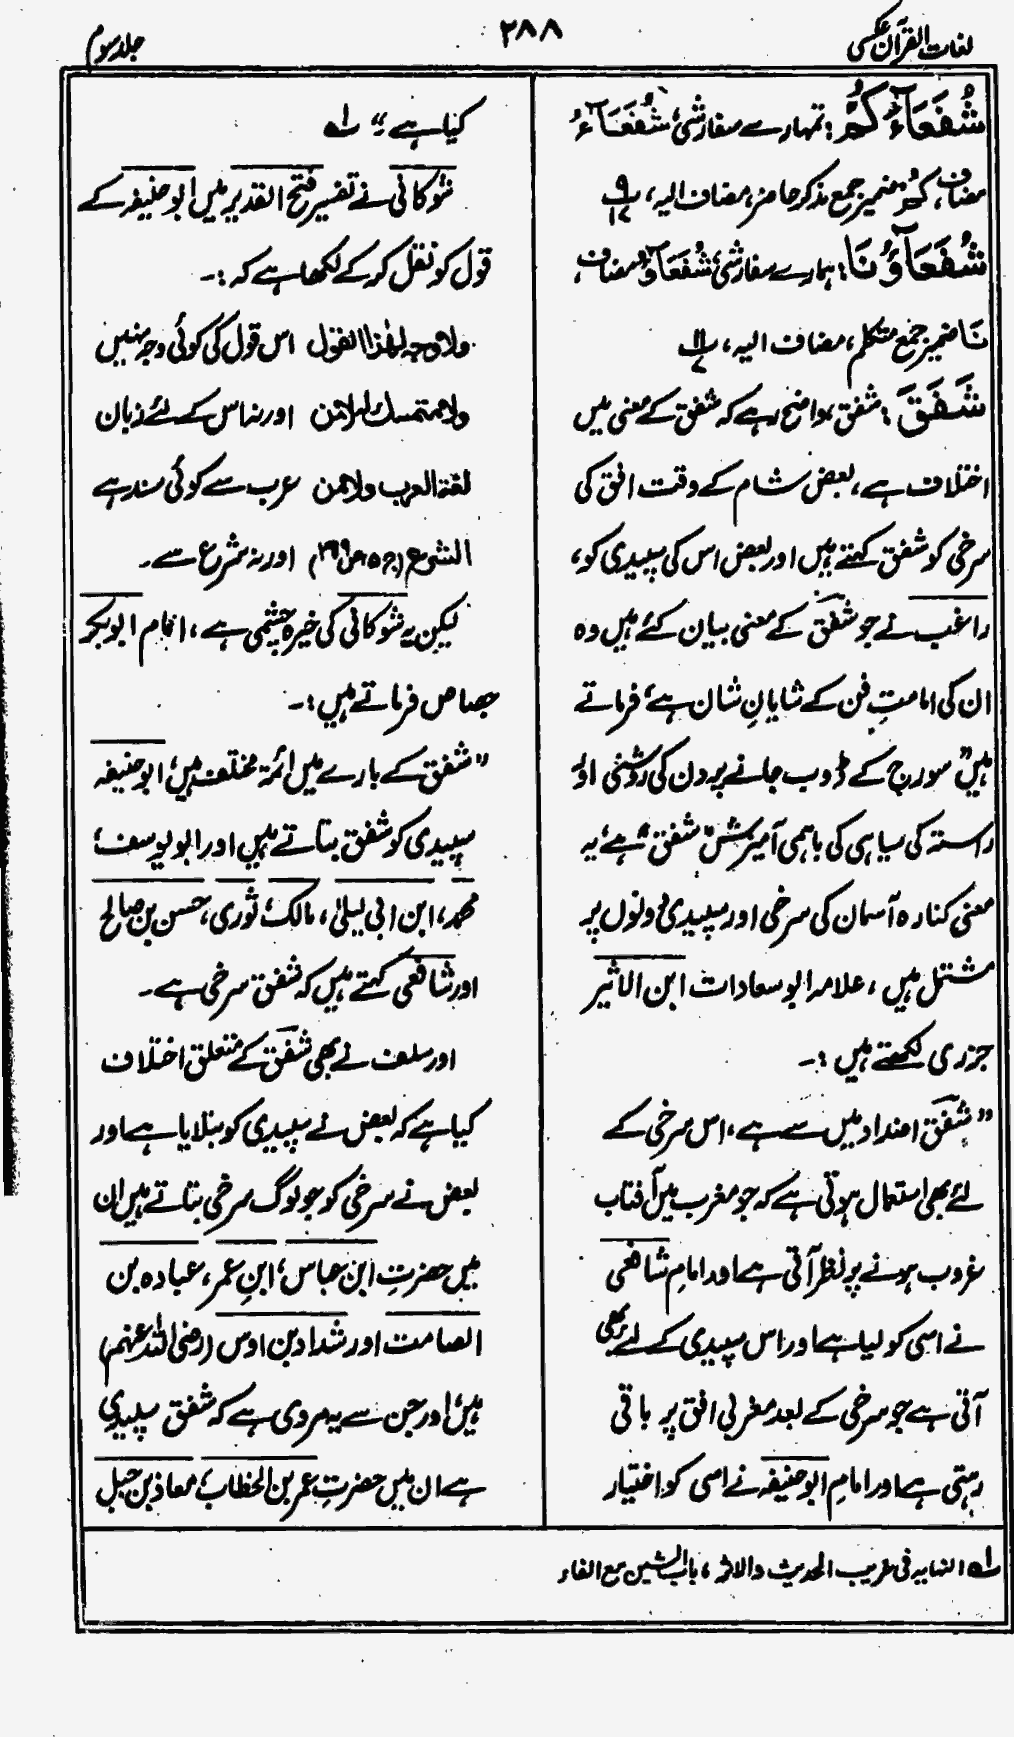 لغات القرآن عکسی
۲۸۸
جلد سوم
شُفَعَآءُکُمْ: تمہارے سفارشی، شُفَعَآءُ
مضاف، کُمْ ضمیر جمع مذکر حاضر، مضاف الیہ، پ ۹/۱۷
شُفَعَآؤُنَا: ہمارے سفارشی، شُفَعَآؤُ مضاف،
نَا ضمیر جمع متکلم، مضاف الیہ، پ ۱۱/۷
شَفَقَ: شفق، واضح رہے کہ شفق کے معنی میں
اختلاف ہے، بعض شام کے وقت افق کی
سرخی کو شفق کہتے ہیں اور بعض اس کی سپیدی کو،
راغب نے جو شفق کے معنی بیان کئے ہیں وہ
ان کی امامتِ فن کے شایانِ شان ہے، فرماتے
ہیں "سورج کے ڈوب جانے پر دن کی روشنی اور
راستہ کی سیاہی کی باہمی آمیزش "شفق" ہے، یہ
معنی کنارہ آسمان کی سرخی اور سپیدی دونوں پر
مشتمل ہیں، علامہ ابو سعادات ابن الاثیر
جزری لکھتے ہیں :۔
"شفق اضداد میں سے ہے، اس سرخی کے
لئے بھی استعمال ہوتی ہے کہ جو مغرب میں آفتاب
غروب ہونے پر نظر آتی ہے اور امام شافعی
نے اسی کو لیا ہے اور اس سپیدی کے لئے بھی
آتی ہے جو سرخی کے بعد مغربی افق پر باقی
رہتی ہے اور امام ابو حنیفہ نے اسی کو اختیار
کیا ہے" ۱؎
شوکانی نے تفسیر فتح القدیر میں ابو حنیفہ کے
قول کو نقل کر کے لکھا ہے کہ :۔
ولا وجہ لہٰذا القول اس قول کی کوئی وجہ نہیں
ولا متمسک لہ لا من اور نہ اس کے لئے زبان
لغۃ العرب ولا من عرب سے کوئی سند ہے
الشرع (ج ۵ ص ۳۹۹) اور نہ شرع سے۔
لیکن یہ شوکانی کی خیرہ چشمی ہے، امام ابوبکر
جصاص فرماتے ہیں :۔
"شفق کے بارے میں ائمہ مختلف ہیں، ابو حنیفہ
سپیدی کو شفق بتاتے ہیں اور ابو یوسف،
محمد، ابن ابی لیلیٰ، مالک، ثوری، حسن بن صالح
اور شافعی کہتے ہیں کہ شفق سرخی ہے۔
اور سلف نے بھی شفق کے متعلق اختلاف
کیا ہے کہ بعض نے سپیدی کو بتلایا ہے اور
بعض نے سرخی کو جو لوگ سرخی بتاتے ہیں ان
میں حضرتِ ابن عباس، ابنِ عمر، عبادہ بن
الصامت اور شداد بن اوس (رضی اللہ عنہم)
ہیں، اور جن سے یہ مروی ہے کہ شفق سپیدی
ہے ان میں حضرتِ عمر بن الخطاب، معاذ بن جبل
۱؎ النہایہ فی غریب الحدیث والاثر، باب الشین مع الفاء